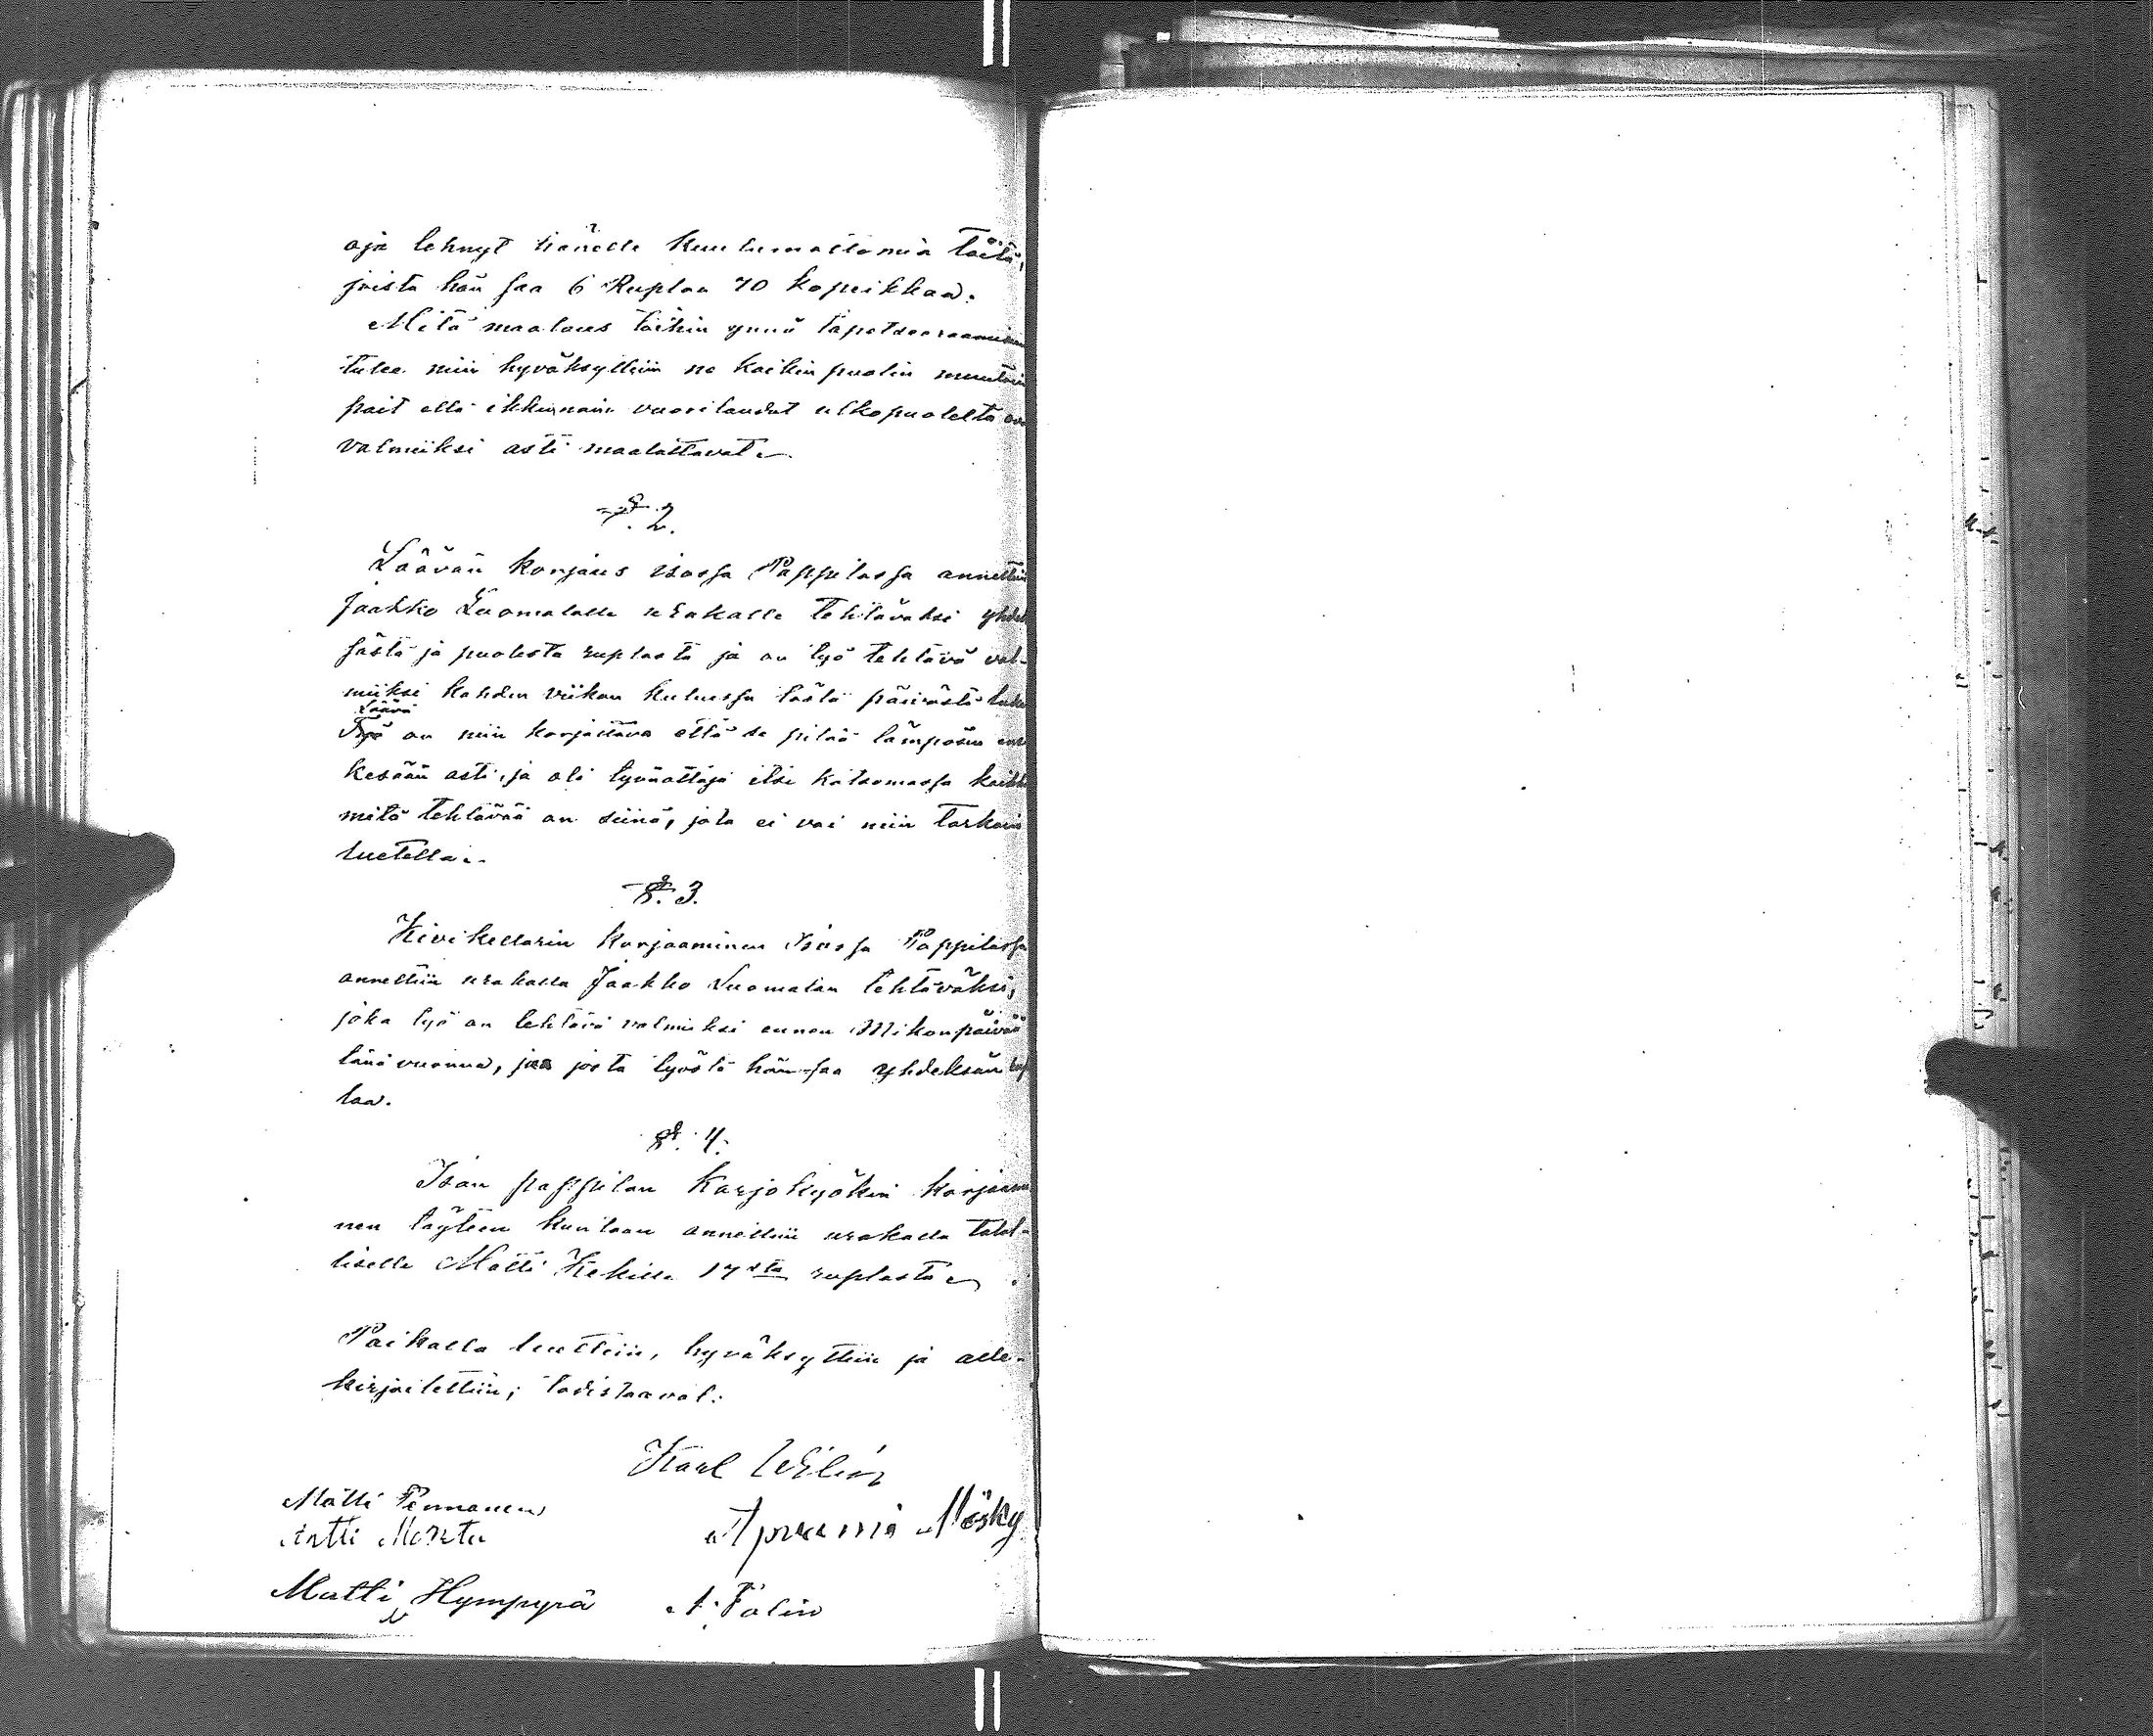 oja tehnyt hänelle kuulumattomia töitä,
joista hän saa 6 Ruplaa 70 kopeikkaa.
Mitä maalaus töihin ynnä tapetseeraamiseen
tulee niin hyväksyttiin ne kaikin puolin muutoin
pait että ikkunain vuorilaudat ulkopuolelta ova
valmiiksi asti maalattavat.
§. 2.
Läävän korjaus isossa Pappilassa annettiin
Jaakko Luomalalle urakalle tehtäväksi yhdek
sästä ja puolesta ruplasta ja on työ tehtävä val-
miiksi kahden viikon kuluessa tästä päivästä luki
Läävä
Työ on niin korjattava että se pitää lämpösen ens
kesään asti, ja oli työnottaja itse katsomassa kaikki
mitä tehtävää on siinä, jota ei voi niin tarkoin
luetella.
§. 3.
Kivikellarin korjaaminen Isossa Pappilassa
annettiin urakalla Jaakko Luomalan tehtäväksi,
joka työ on tehtävä valmiiksi ennen Mikonpäivää
tänä vuonna, jaa josta työstä hän saa yhdeksän rup
laa.
§. 4.
Ison pappilan Karjakyökin korjaami
nen täyteen kuntoon annettiin urakalla talol-
liselle Matti Kekille 17 sta ruplasta.
Paikalla luettiin, hyväksyttiin ja alle-
kirjoitettiin; todistaavat:
Karl
Matti Pennanen
Antti
Mösky
Matti Hympyrä
A.